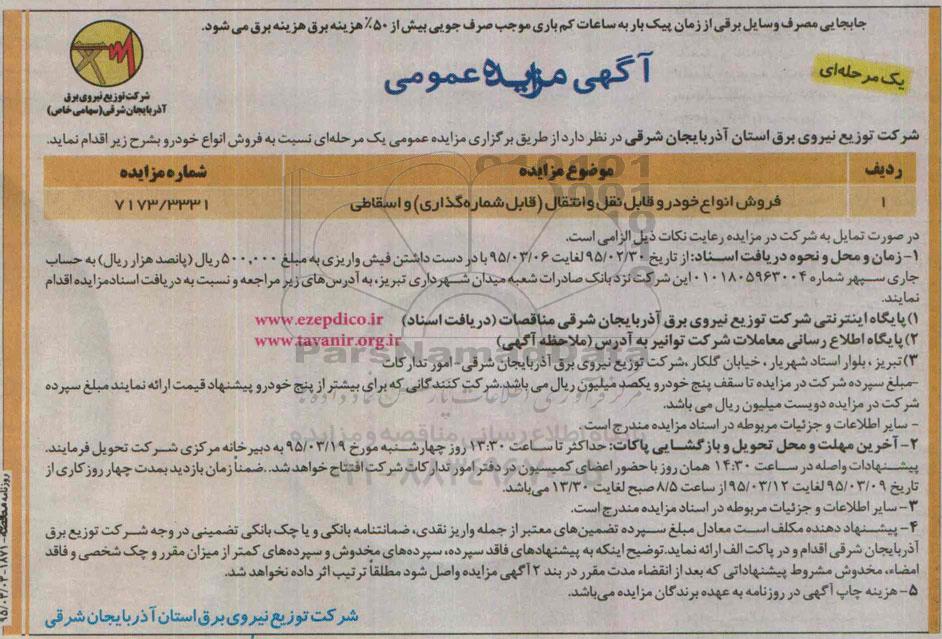 جابجایی مصرف وسایل برقی از زمان پیک بار به ساعات کم باری موجب صرف جویی بیش از ۵۰٪ هزینه برق هزینه برق می شود.
آگهی مزایده عمومی
یک مرحله‌ای
شرکت توزیع نیروی برق
آذربایجان شرقی (سهامی خاص)
شرکت توزیع نیروی برق استان آذربایجان شرقی در نظر دارد از طریق برگزاری مزایده عمومی یک مرحله‌ای نسبت به فروش انواع خودرو بشرح زیر اقدام نماید.
ردیف موضوع مزایده شماره مزایده
۱ فروش انواع خودرو قابل نقل و انتقال (قابل شماره گذاری) و اسقاطی ۷۱۷۳/۳۳۳۱
در صورت تمایل به شرکت در مزایده رعایت نکات ذیل الزامی است.
۱- زمان و محل و نحوه دریافت اسناد: از تاریخ ۹۵/۰۲/۳۰ لغایت ۹۵/۰۳/۰۶ با در دست داشتن فیش واریزی به مبلغ ۵۰۰,۰۰۰ ریال (پانصد هزار ریال) به حساب
جاری سپهر شماره ۰۱۰۱۸۰۵۹۶۳۰۰۴ این شرکت نزد بانک صادرات شعبه میدان شهرداری تبریز، به آدرس‌های زیر مراجعه و نسبت به دریافت اسناد مزایده اقدام
نمایند.
۱) پایگاه اینترنتی شرکت توزیع نیروی برق آذربایجان شرقی مناقصات (دریافت اسناد) www.ezepdico.ir
۲) پایگاه اطلاع رسانی معاملات شرکت توانیر به آدرس (ملاحظه آگهی) www.tavanir.org.ir
ParsNamadData
۳) تبریز، بلوار استاد شهریار، خیابان گلکار، شرکت توزیع نیروی برق آذربایجان شرقی- امور تدارکات
-مبلغ سپرده شرکت در مزایده تا سقف پنج خودرو یکصد میلیون ریال می باشد. شرکت کنندگانی که برای بیشتر از پنج خودرو پیشنهاد قیمت ارائه نمایند مبلغ سپرده
شرکت در مزایده دویست میلیون ریال می باشد.
- سایر اطلاعات و جزئیات مربوطه در اسناد مزایده مندرج است.
۲- آخرین مهلت و محل تحویل و بازگشایی پاکات: حداکثر تا ساعت ۱۳:۳۰ روز چهارشنبه مورخ ۹۵/۰۳/۱۹ به دبیرخانه مرکزی شرکت تحویل فرمایند.
پیشنهادات واصله در ساعت ۱۴:۳۰ همان روز با حضور اعضای کمیسیون در دفتر امور تدارکات شرکت افتتاح خواهد شد. ضمنا زمان بازدید بمدت چهار روز کاری از
تاریخ ۹۵/۰۳/۰۹ لغایت ۹۵/۰۳/۱۲ از ساعت ۸/۵ صبح لغایت ۱۳/۳۰ می‌باشد.
۳- سایر اطلاعات و جزئیات مربوطه در اسناد مزایده مندرج است.
۴- پیشنهاد دهنده مکلف است معادل مبلغ سپرده تضمین‌های معتبر از جمله واریز نقدی، ضمانتنامه بانکی و یا چک بانکی تضمینی در وجه شرکت توزیع برق
آذربایجان شرقی اقدام و در پاکت الف ارائه نماید. توضیح اینکه به پیشنهادهای فاقد سپرده، سپرده‌های مخدوش و سپرده‌های کمتر از میزان مقرر و چک شخصی و فاقد
امضاء، مخدوش مشروط پیشنهاداتی که بعد از انقضاء مدت مقرر در بند ۲ آگهی مزایده واصل شود مطلقاً ترتیب اثر داده نخواهد شد.
۵- هزینه چاپ آگهی در روزنامه به عهده برندگان مزایده می‌باشد.
شرکت توزیع نیروی برق استان آذربایجان شرقی